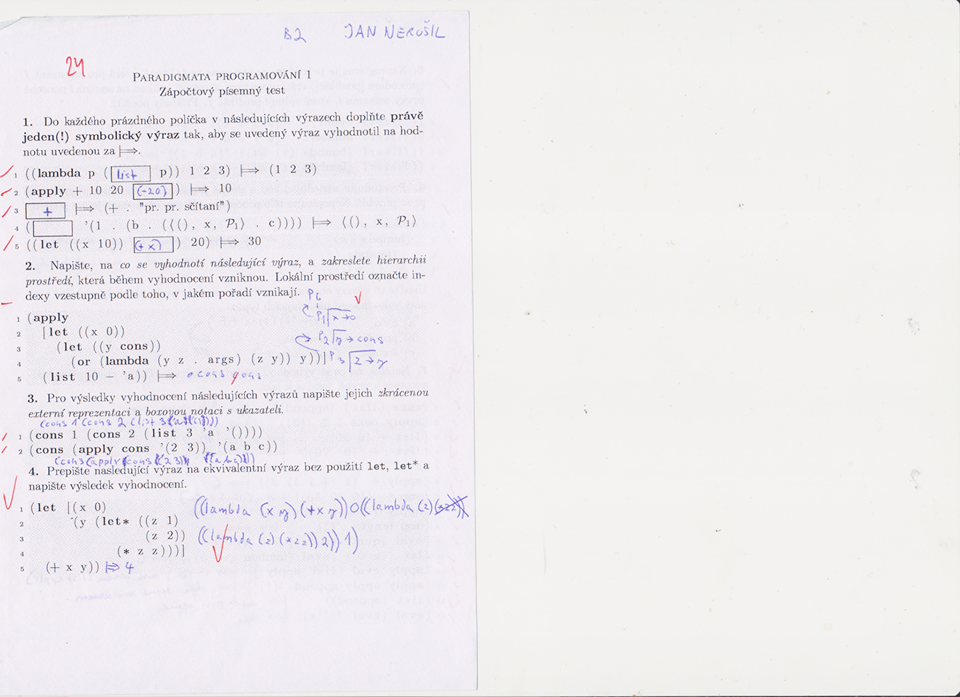 B2 JAN NERUŠIL
24
PARADIGMATA PROGRAMOVÁNÍ 1
Zápočtový písemný test
1. Do každého prázdného políčka v následujících výrazech doplňte právě
jeden(!) symbolický výraz tak, aby se uvedený výraz vyhodnotil na hod-
notu uvedenou za ⊫⇒.
1 ((lambda p (list p)) 1 2 3) ⊫⇒ (1 2 3)
2 (apply + 10 20 (-20)) ⊫⇒ 10
3 + ⊫⇒ (+ . "pr. pr. sčítaní")
4 ( '(1 . (b . (⟨⟨(), x, P₁⟩ . c)))) ⊫⇒ ⟨(), x, P₁⟩
5 ((let ((x 10)) (+ x)) 20) ⊫⇒ 30
2. Napište, na co se vyhodnotí následující výraz, a zakreslete hierarchii
prostředí, která během vyhodnocení vzniknou. Lokální prostředí označte in-
dexy vzestupně podle toho, v jakém pořadí vznikají.
1 (apply
P₁ x→0
2 [let ((x 0))
P₂ y→cons
3 (let ((y cons))
4 (or (lambda (y z . args) (z y)) y))] P₃ 2→y
5 (list 10 - 'a)) ⊫⇒
3. Pro výsledky vyhodnocení následujících výrazů napište jejich zkrácenou
externí reprezentaci a boxovou notaci s ukazateli.
1 (cons 1 (cons 2 (list 3 'a '())))
2 (cons (apply cons '(2 3)) '(a b c))
4. Prepište nasledující výraz na ekvivalentní výraz bez použití let, let* a
napište výsledek vyhodnocení.
1 (let [(x 0) ((lambda (x y) (+ x y)) 0 ((lambda (z)
2 (y (let* ((z 1)
3 (z 2)) ((lambda (z) (* z z)) 2)) 1)
4 (* z z)))]
5 (+ x y)) ⊫⇒ 4